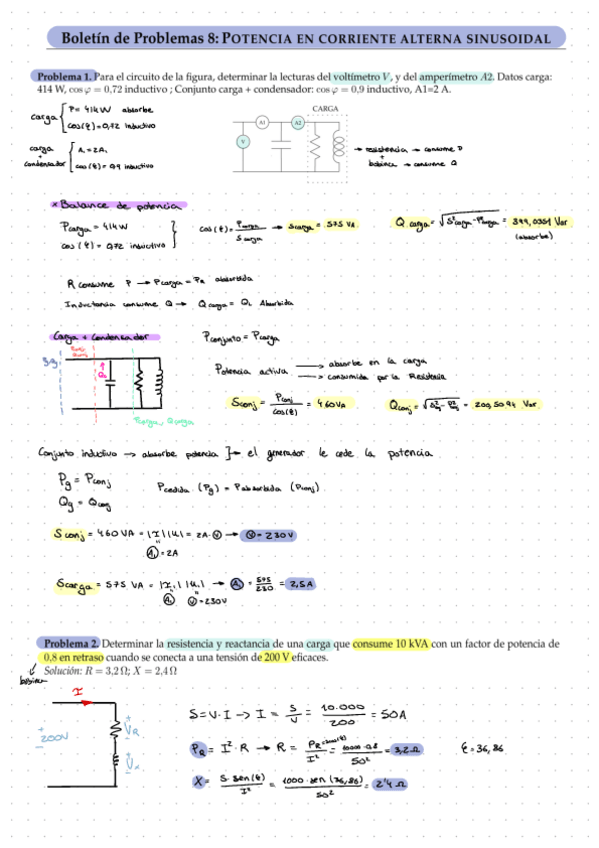 Boletín de Problemas 8: POTENCIA EN CORRIENTE ALTERNA SINUSOIDAL
Problema 1. Para el circuito de la figura, determinar la lecturas del voltímetro V, y del amperímetro A2. Datos carga:
414 W, cos φ = 0,72 inductivo ; Conjunto carga + condensador: cos φ = 0,9 inductivo, A1=2 A.
carga { P = 414 W absorbe
cos(φ) = 0,72 inductivo
carga + condensador { A1 = 2A
cos(φ) = 0,9 inductivo
CARGA
A1
A2
V
→ resistencia → consume P
bobina → consume Q
* Balance de potencia
Pcarga = 414 W
cos(φ) = 0,72 inductivo
cos(φ) = Pcarga / Scarga → Scarga = 575 VA
Q carga = √S²carga - P²carga = 399,0351 Var
(absorbe)
R consume P → Pcarga = PR absorbida
Inductancia consume Q → Qcarga = QL Absorbida
Carga + Condensador
Pconjunto = Pcarga
Potencia activa → absorbe en la carga
→ consumida por la Resistencia
Sconj = Pconj / cos(φ) = 460 VA
Qconj = √S²conj - P²conj = 200,5094 Var
Pcarga, Qcarga
Conjunto inductivo → absorbe potencia ]→ el generador le cede la potencia
Pg = Pconj
Qg = Qconj
Pcedida (Pg) = Pabsorbida (Pconj)
Sconj = 460 VA = |I||U| = 2A · V → V = 230V
A1 = 2A
Scarga = 575 VA = |I1||U1| → A2 = 575/230 = 2,5A
V = 230V
Problema 2. Determinar la resistencia y reactancia de una carga que consume 10 kVA con un factor de potencia de
0,8 en retraso cuando se conecta a una tensión de 200 V eficaces.
Solución: R = 3,2 Ω; X = 2,4 Ω
bobina
I
200V
+ VR -
+ Vx -
S = V · I → I = S/V = 10.000/200 = 50A
PR = I² · R → R = PR/I² = 10000 · 0,8 / 50² = 3,2 Ω
φ = 36,86
X = S · sen(φ) / I² = 1000 · sen(36,86) / 50² = 2'4 Ω